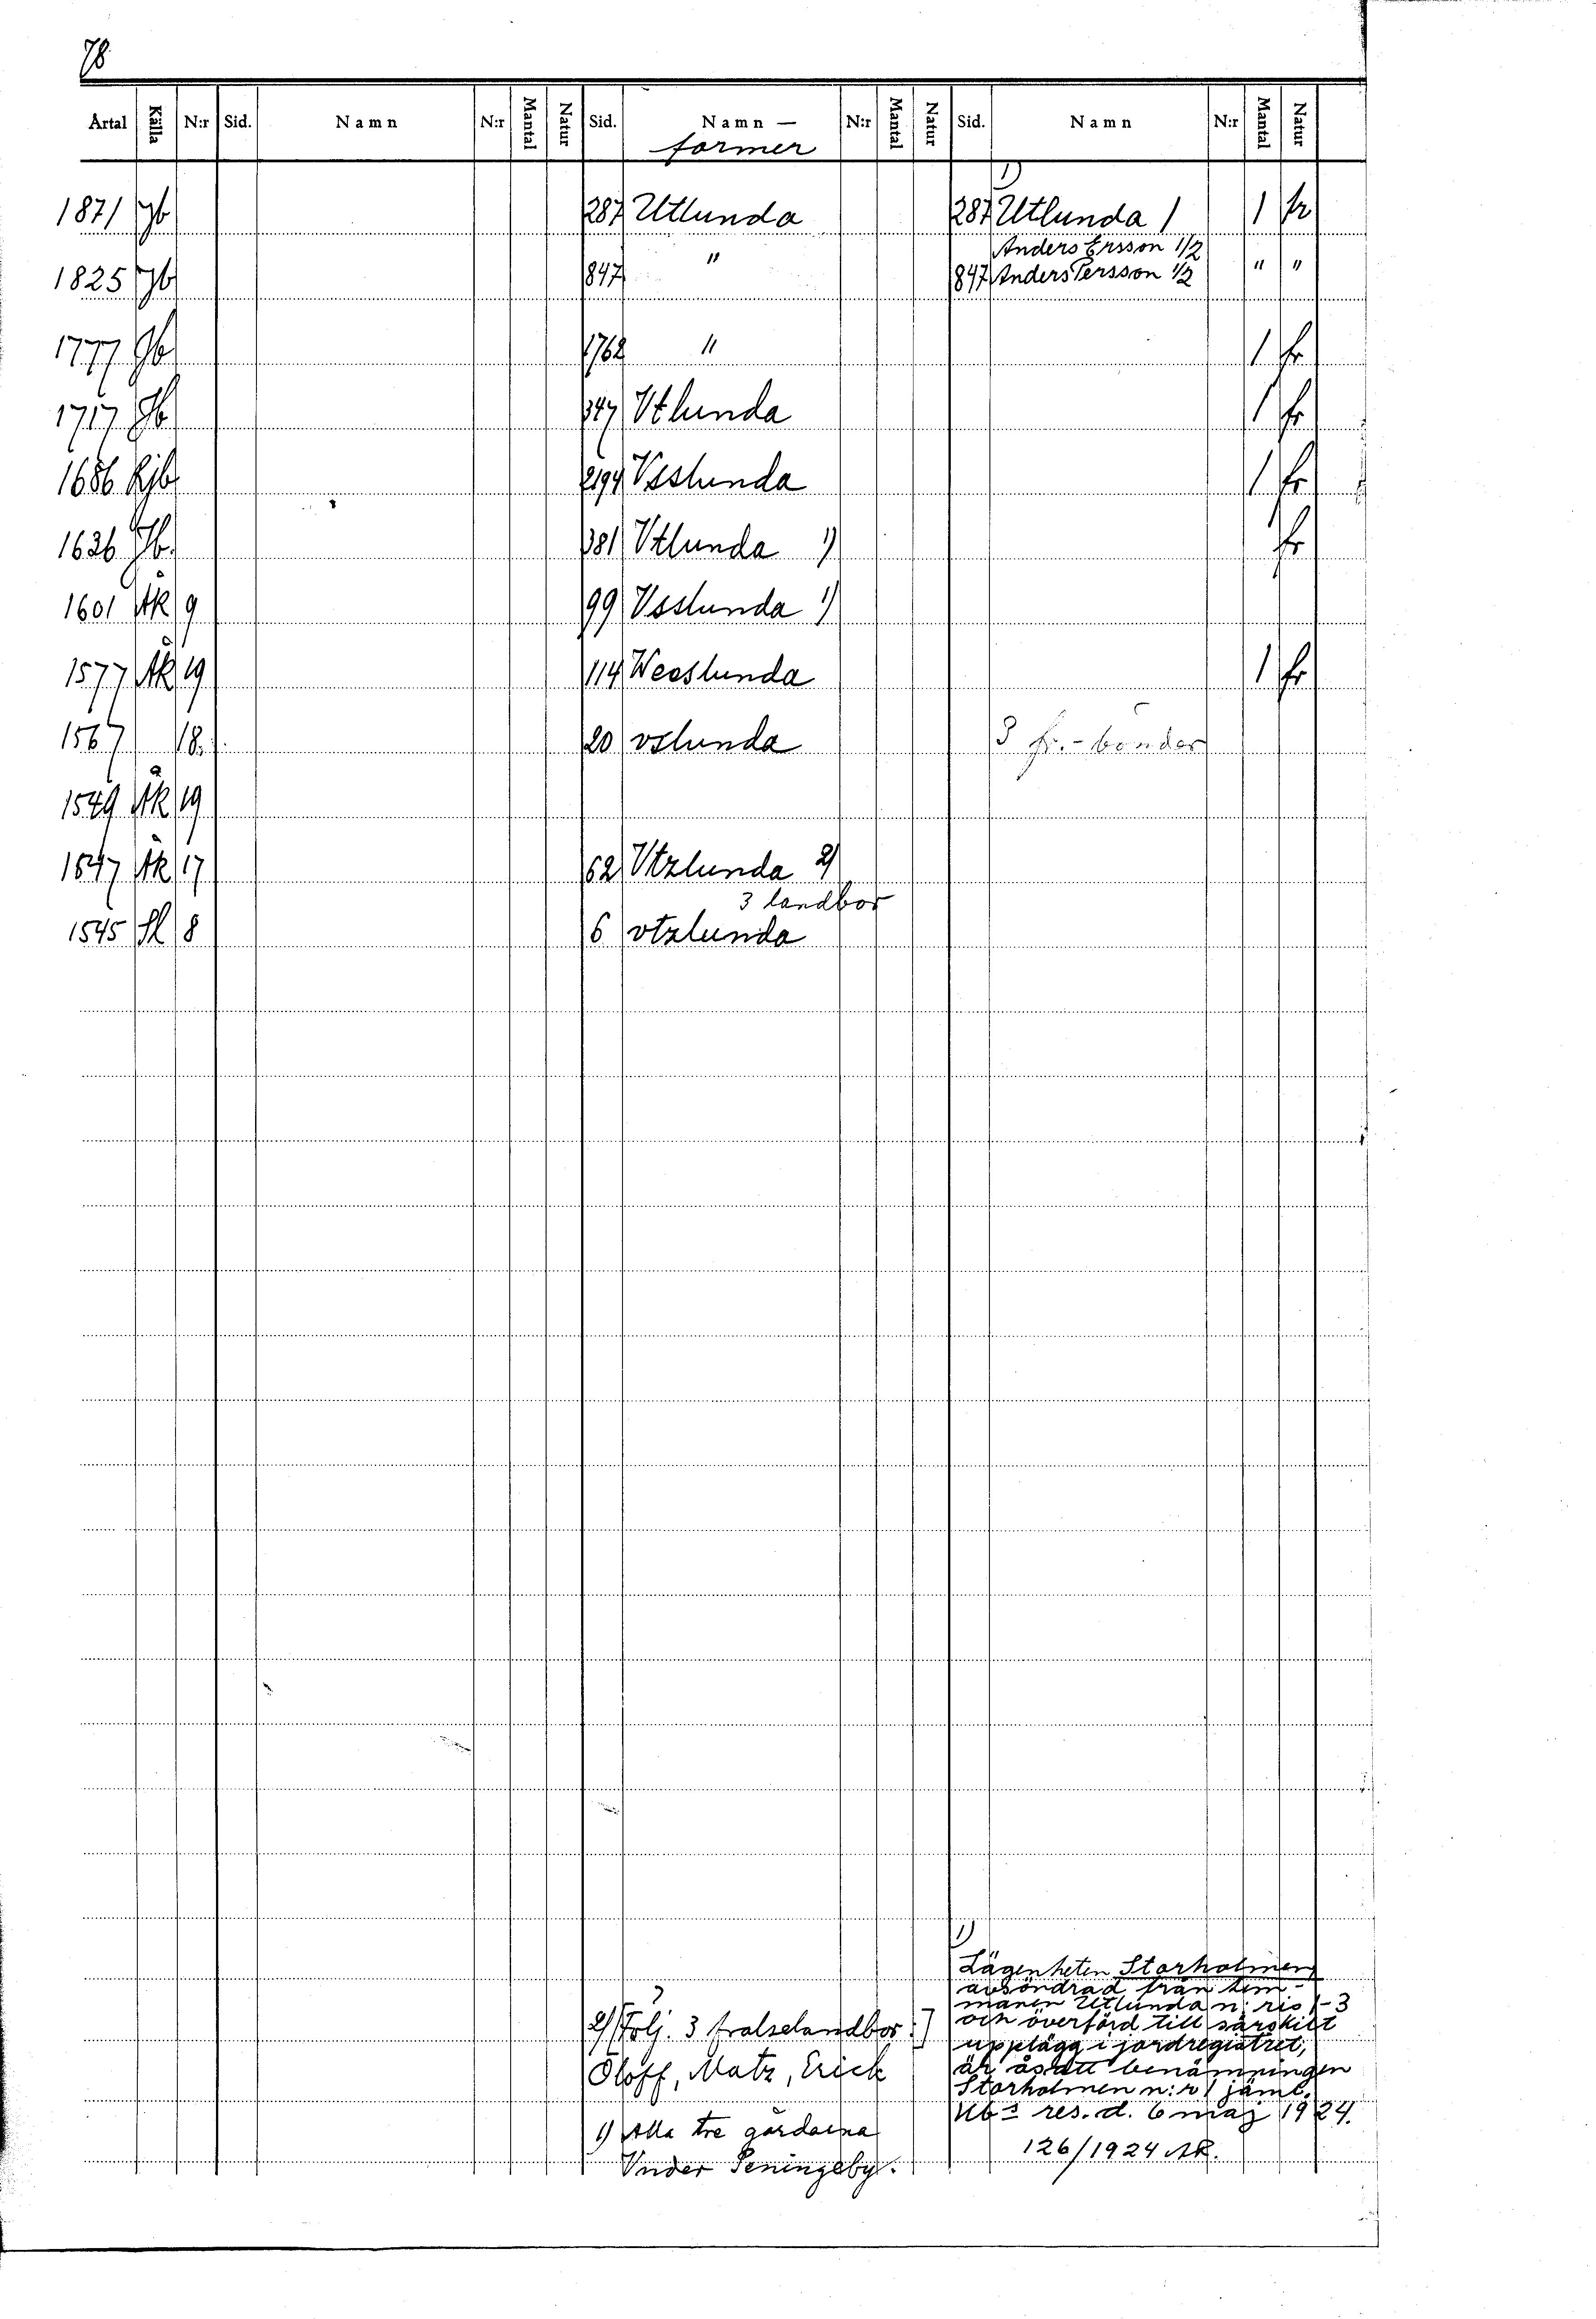 78
Artal Källa N:r Sid. Namn N:r Mantal Natur Sid. Namn — N:r Mantal Natur Sid. Namn N:r Mantal Natur
former
1)
1871 Jb 287 Utlunda 287 Utlunda 1 1 fr
Anders Ersson 1/2
1825 Jb 847 " 847 Anders Persson 1/2 " "
1777 Jb 1762 " 1 fr
1717 Jb 347 Vtlunda 1 fr
1686 Rjb 2194 Vsslunda 1 fr
1626 Jb. 381 Vtlunda 1) fr
1601 ÅK 9 99 Vsslunda 1)
1577 ÅK 19 114 Weeslunda 1 fr
1567 18. 20 vslunda 3 fr.-bönder
1549 ÅK 19
1547 ÅK 17 62 Vtzlunda 2)
3 landbor
1545 Sl 8 6 vtzlunda
1)
Lägenheten Storholmen
avsöndrad från hem-
manen Utlunda n:ris 1-3
och överförd till särskilt
upplägg i jordregistret,
är åsatt benämningen
Storholmen n:r 1 jäml.
Kbs res. d. 6 maj 1924.
126/1924 AK.
2) [följ. 3 frälselandbor:]
Oloff, Matz, Erick
1) Alla tre gårdarna
Vnder Peningeby.